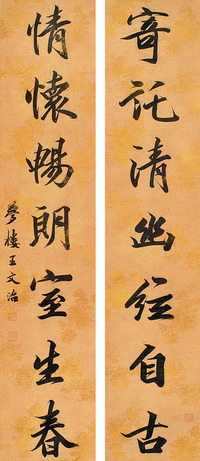 寄託清幽弦自古
情懷暢朗室生春
夢樓王文治